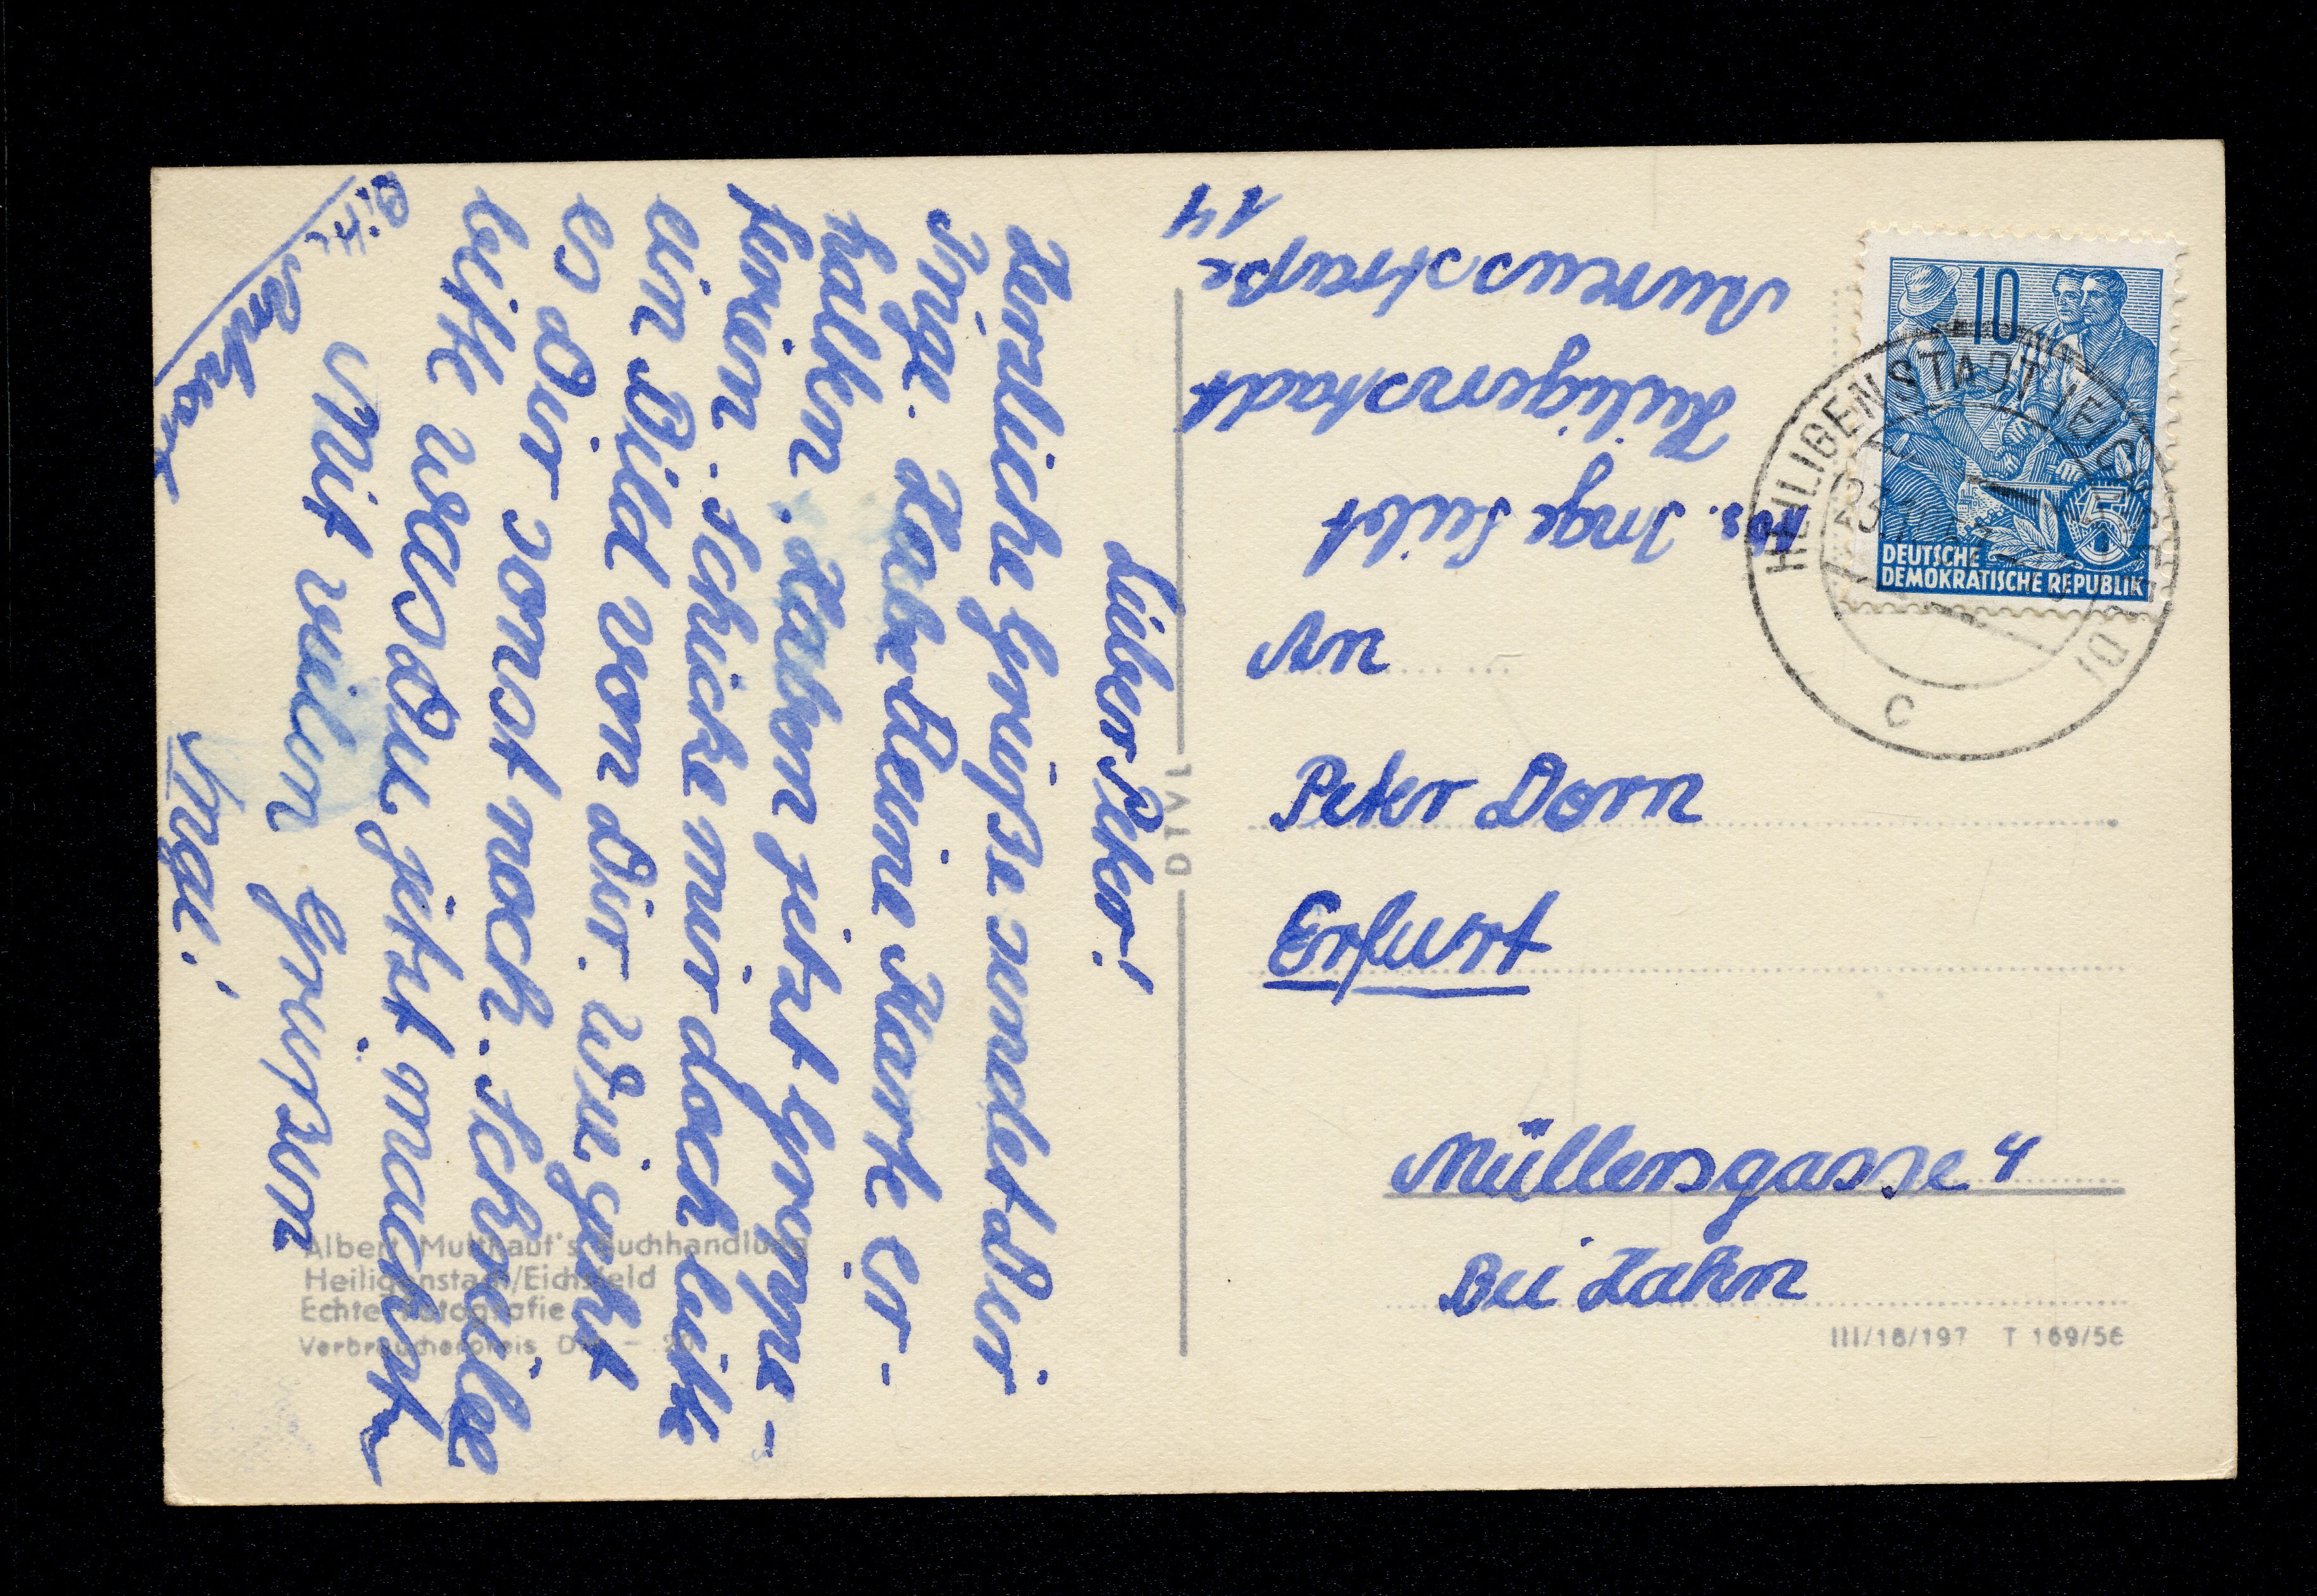 Lieber Peter!
Herzliche Grüße sendet Dir
Inge. Habe Deine Karte er-
halten. Haben jetzt große
ferien. Schicke mir doch bitte
ein Bild von dir. Wie geht
es Dir sonst noch. Schreibe
bitte was Du jetzt machst
Mit vielen Grüßen
Inge!
Bitte
Antwort
Abs. Inge Seibt
Heiligenstadt
14
10
5
DEUTSCHE
DEMOKRATISCHE REPUBLIK
HEILIGENSTADT (EICHSFELD)
c
An
Peter Dorn
Erfurt
Müllersgasse 4
Bei Zahn
Albert Multhauf's Buchhandlung
Heiligenstadt/Eichsfeld
Echte Fotografie
Verbraucherpreis
III/18/197 T 169/56